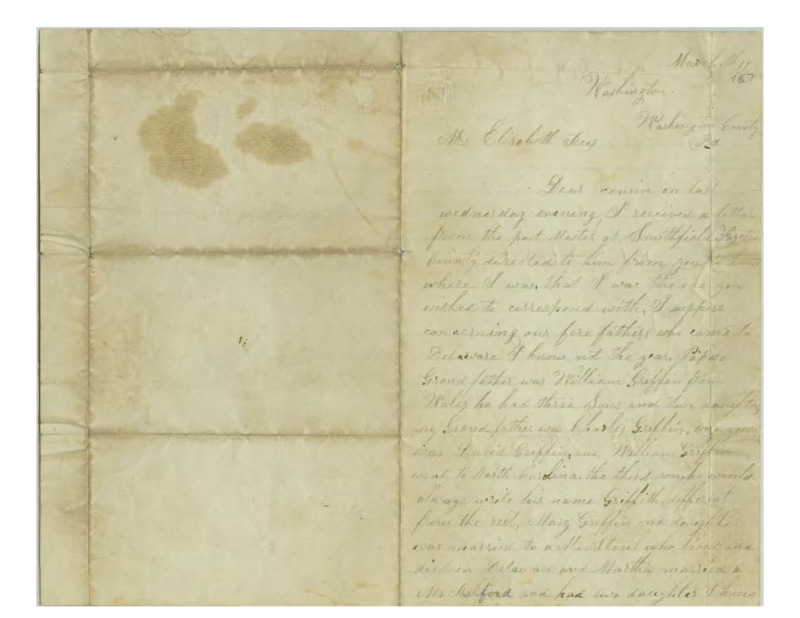 March
187
Washington.
Washington County
Pa
Mrs Elisabeth
Dear cousin on last
wednesday evening, I received a letter
from the post Master at Smithfield Fayette
County directed to him from you to
where I was, that I was the one you
wished to correspond with, I suppose
concerning our fore fathers who came to
Delaware I know not the year, Papas
Grand father was William Griffin from
Wales he had three Sons and two daughters
my Grand father was Charles Griffin, one
was David Griffin, and William Griffin
went to North Carolina. the third son he would
always write his name Griffith, different
from the rest, Mary Griffin one daughter
was married to a Mr Stout who lived and
died in Delaware and Martha married a
Mr Ashford and had two daughter I know